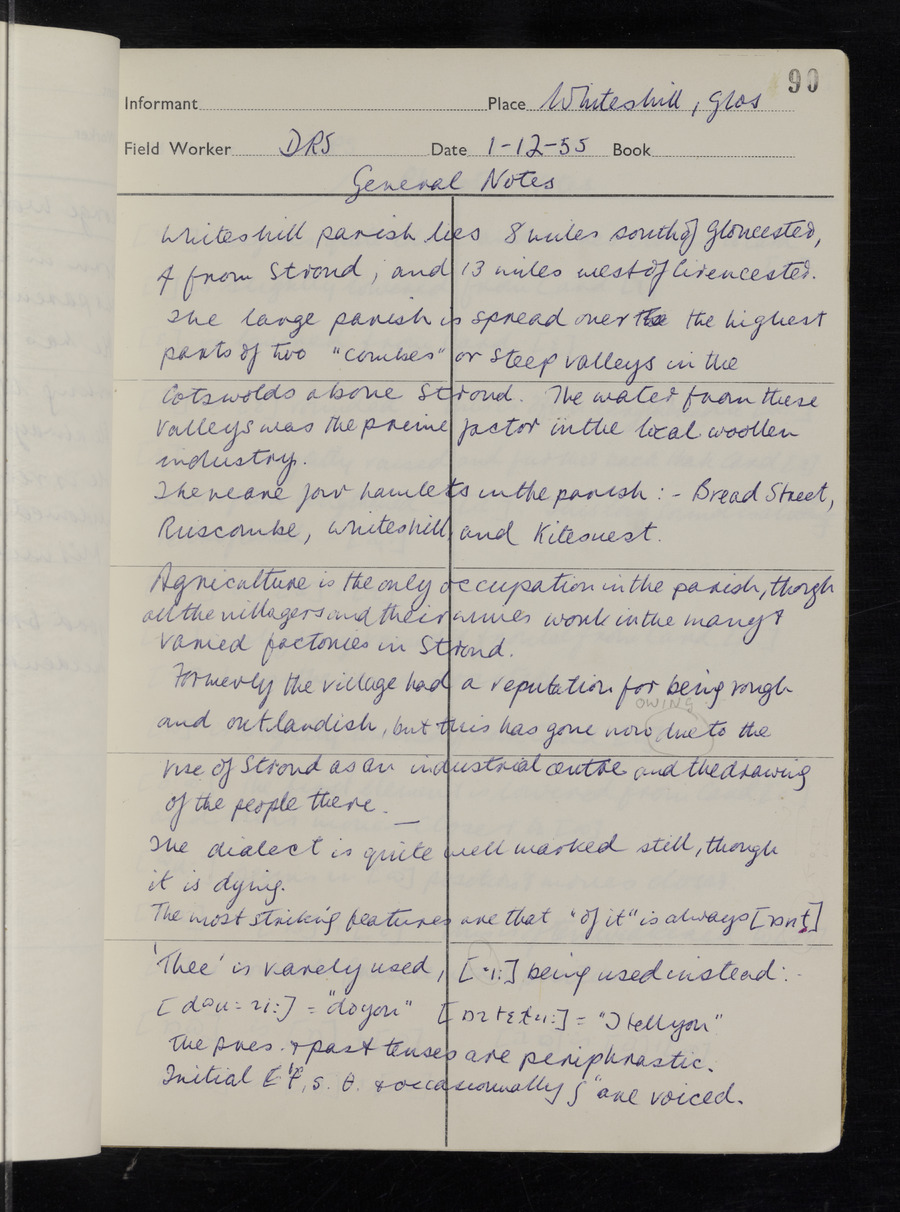 90
Informant Place Whiteshill, Glos
Field Worker DRS Date 1-12-55 Book
General Notes
Whiteshill parish lies 8 miles south of Gloucester,
4 from Stroud, and 13 miles west of Cirencester.
The large parish is spread over the the highest
parts of two "combes" or steep valleys in the
Cotswolds above Stroud. The water from these
valleys was the prime factor in the local woollen
industry.
There are four hamlets in the parish :- Bread Street,
Ruscombe, Whiteshill and Kitesnest.
Agriculture is the only occupation in the parish, though
all the villagers and their wives work in the many &
varied factories in Stroud.
Formerly the village had a reputation for being rough
OWING
and outlandish, but this has gone now due to the
rise of Stroud as an industrial centre and the drawing
of the people there.
The dialect is quite well marked still, though
it is dying.
The most striking features are that "of it" is always
'Thee' is rarely used, being used instead :-
= "do you" = "I tell you"
The pres. & past tenses are periphrastic.
Initial f, s, θ. & occasionally ʃ are voiced.